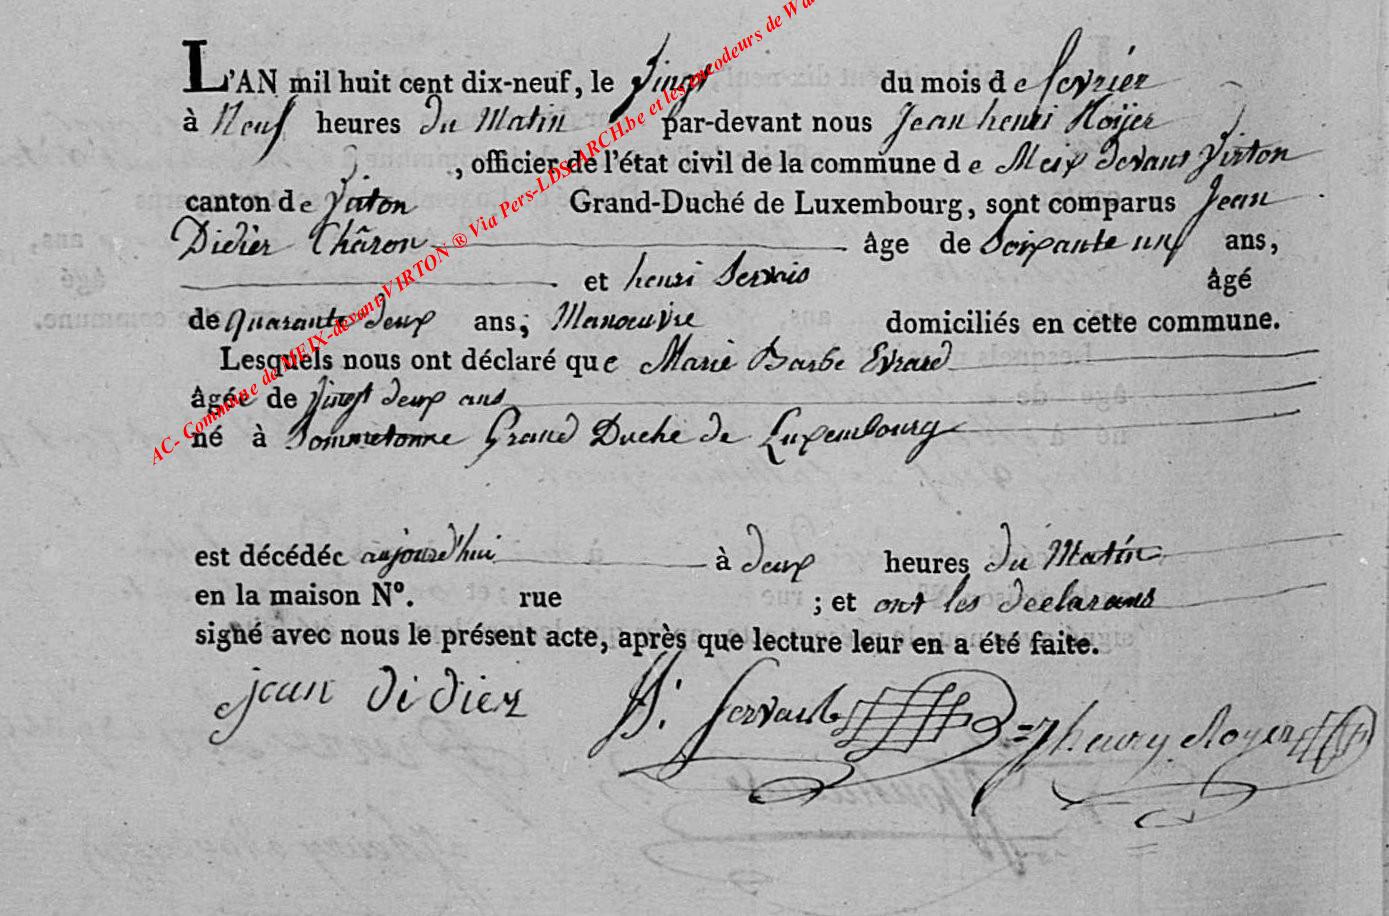 L'AN mil huit cent dix-neuf, le vingt du mois de fevrier
à Neuf heures du Matin par-devant nous Jean henri Roÿer
, officier de l'état civil de la commune de Meix devant Virton
canton de Virton Grand-Duché de Luxembourg, sont comparus Jean
Didier Châron âge de Soixante un ans,
et henri Servais âgé
de quarante deux ans, Manoeuvre domiciliés en cette commune.
Lesquels nous ont déclaré que Marie Barbe Evrard
âgée de vingt deux ans
né à Sommetonne Grand Duché de Luxembourg
est décédée aujourd'hui à deux heures du Matin
en la maison N°. rue ; et ont les declarans
signé avec nous le présent acte, après que lecture leur en a été faite.
jean didier H. Servais Jhenry Royer
AC- Commune de MEIX-devant-VIRTON ® Via Pers-LDS-ARCH.be et les encodeurs de